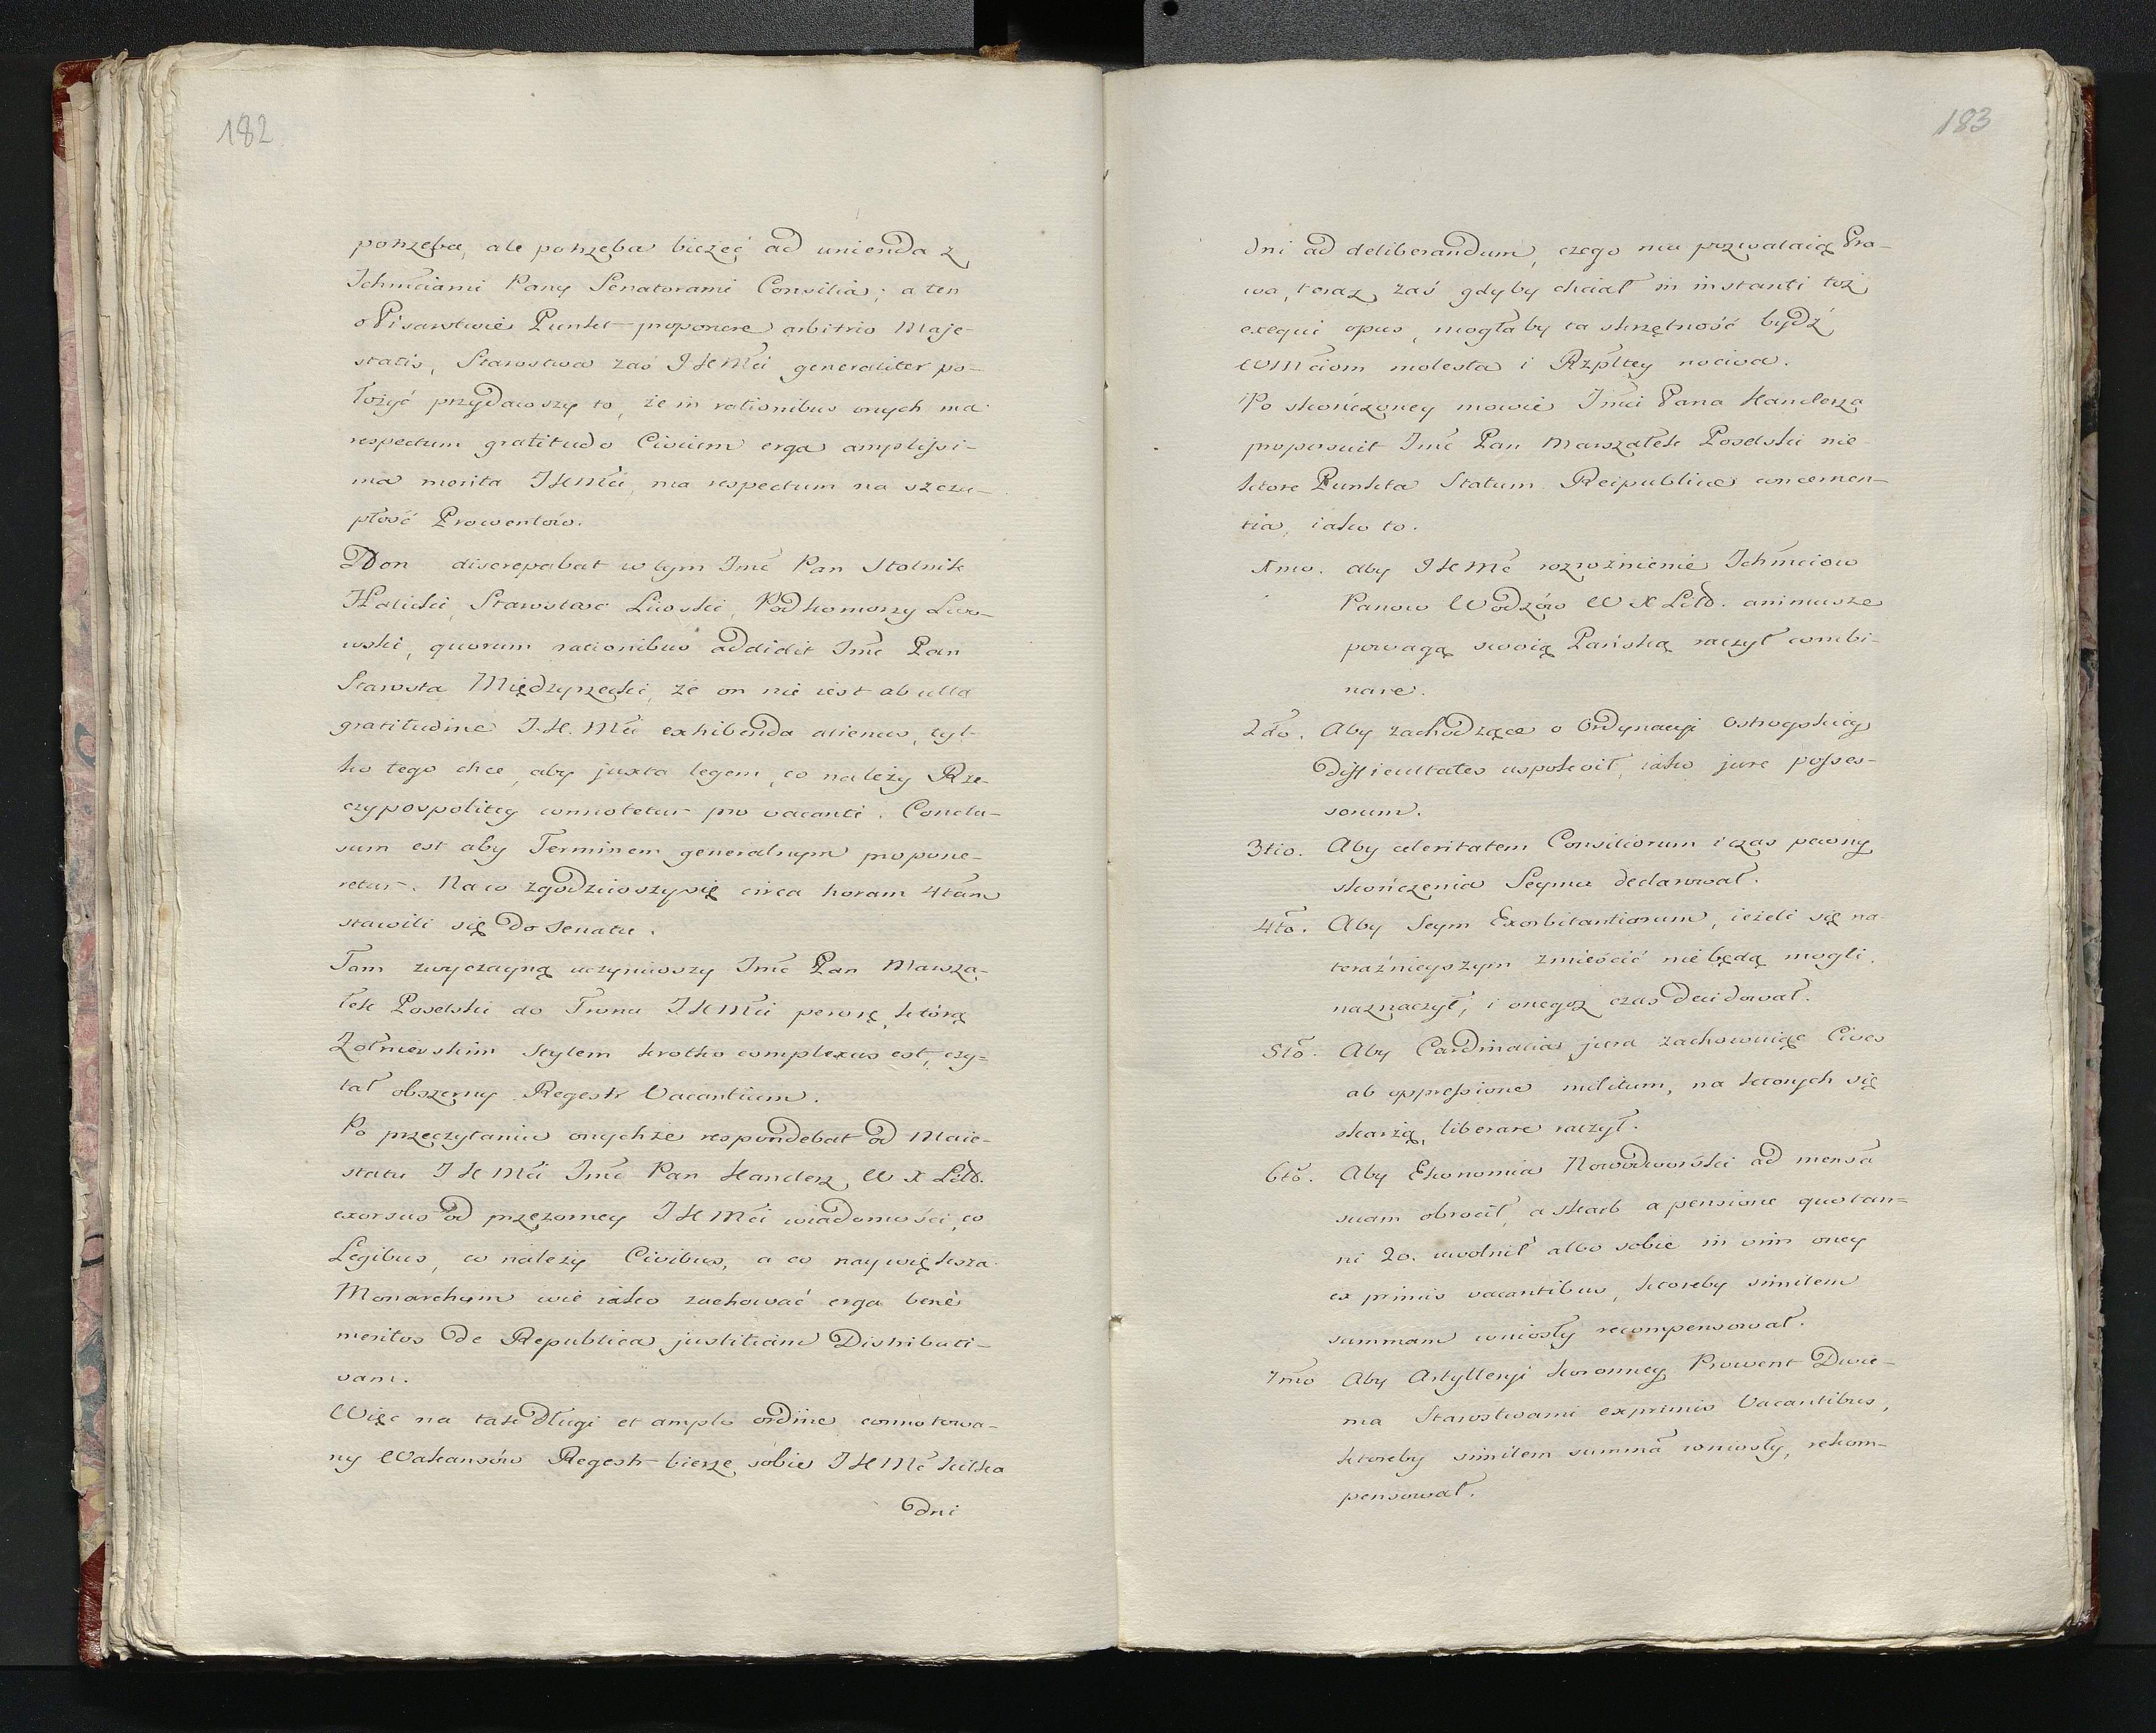 182
potrzeba, ale potrzeba bieżeć ad unienda z
Ichmciami Pany Senatorami Consilia; a ten
o Pisarstwie Punkt proponere arbitrio Maje-
statis, Starostwa zaś JKMci generaliter po-
łożyć przydawszy to, że in rationibus onych ma
respectum gratitudo Civium erga amplissi-
ma merita JKMci, ma respectum na szczu-
płość Prowentów.
Non discrepabat w tym Imć Pan Stolnik
Halicki, Starosta Lwoski, Podkomorzy Lwo-
wski, quorum rationibus addidit Imć Pan
Starosta Międzyrzecki, że on nie iest ab ulla
gratitudine J.K.Mci exhibenda alienus, tyl-
ko tego chce, aby juxta legem, co należy Rze-
czypospolitey connotetur pro vacanti. Conclu-
sum est aby Terminem generalnym propone-
retur. Na co zgodziwszy się circa horam 4tam
stawili się do Senatu.
Tam zwyczayną uczyniwszy Imć Pan Marsza-
łek Poselski do Tronu JKMci perorę, którą
Żołnierskim stylem krotko complexus est, czy-
tał obszerny Regestr Vacantium.
Po przeczytaniu onychże respondebat od Maie-
statu JKMci Imć Pan Kanclerz W X Litt.
exorsus od przezorney JKMci wiadomości, co
Legibus, co należy Civibus, a co naywiększa
Monarchum wie iako zachować erga benè
meritos de Republica justitiam Distributi-
vam.
Więc na tak długi et amplo ordine connotowa-
ny Wakansów Regestr bierze sobie JKMć kilka
dni
183
dni ad deliberandum, czego mu pozwalaią Pra-
wa, teraz zaś gdyby chciał in instanti toż
exequi opus, mogłaby ta skrzętność bydź
WMciom molesta i Rzpltey nociva.
Po skończoney mowie Imci Pana Kanclerza
proposuit Imć Pan Marszałek Poselski nie-
ktore Punkta Statum Reipublicæ concernen-
tia, iako to.
1mo. aby JKMć rozroźnienie Ichmciow
Panow Wodzów W X Litt. animusze
powagą swoią Pańską raczył combi-
nare.
2do. Aby zachodzące o Ordynacyi Ostrogskiey
difficultates uspokoił, iako jure posses-
sorum.
3tio. Aby celeritatem Consiliorum i czas pewny
skończenia Seymu declarował.
4to. Aby Seym Exorbitantiarum, ieżeli się na
teraźnieyszym zmieścić nie będą mogli,
naznaczył, i onegoż czas decidował.
5to. Aby Cardinalia jura zachowuiąc Cives
ab oppressione militum, na ktorych się
skarżą, liberare raczył.
6to. Aby Ekonomia Nowodworski ad mensã
suam obrocił, a skarb a pensione quotan-
ni 20. uwolnił albo sobie in vim oney
ex primis vacantibus, ktoreby similem
summam wniosły recompensował.
7mo Aby Artylleryi koronney Prowent Dwie-
ma Starostwami ex primis Vacantibus,
ktoreby similem summã wniosły, rekom-
pensował.